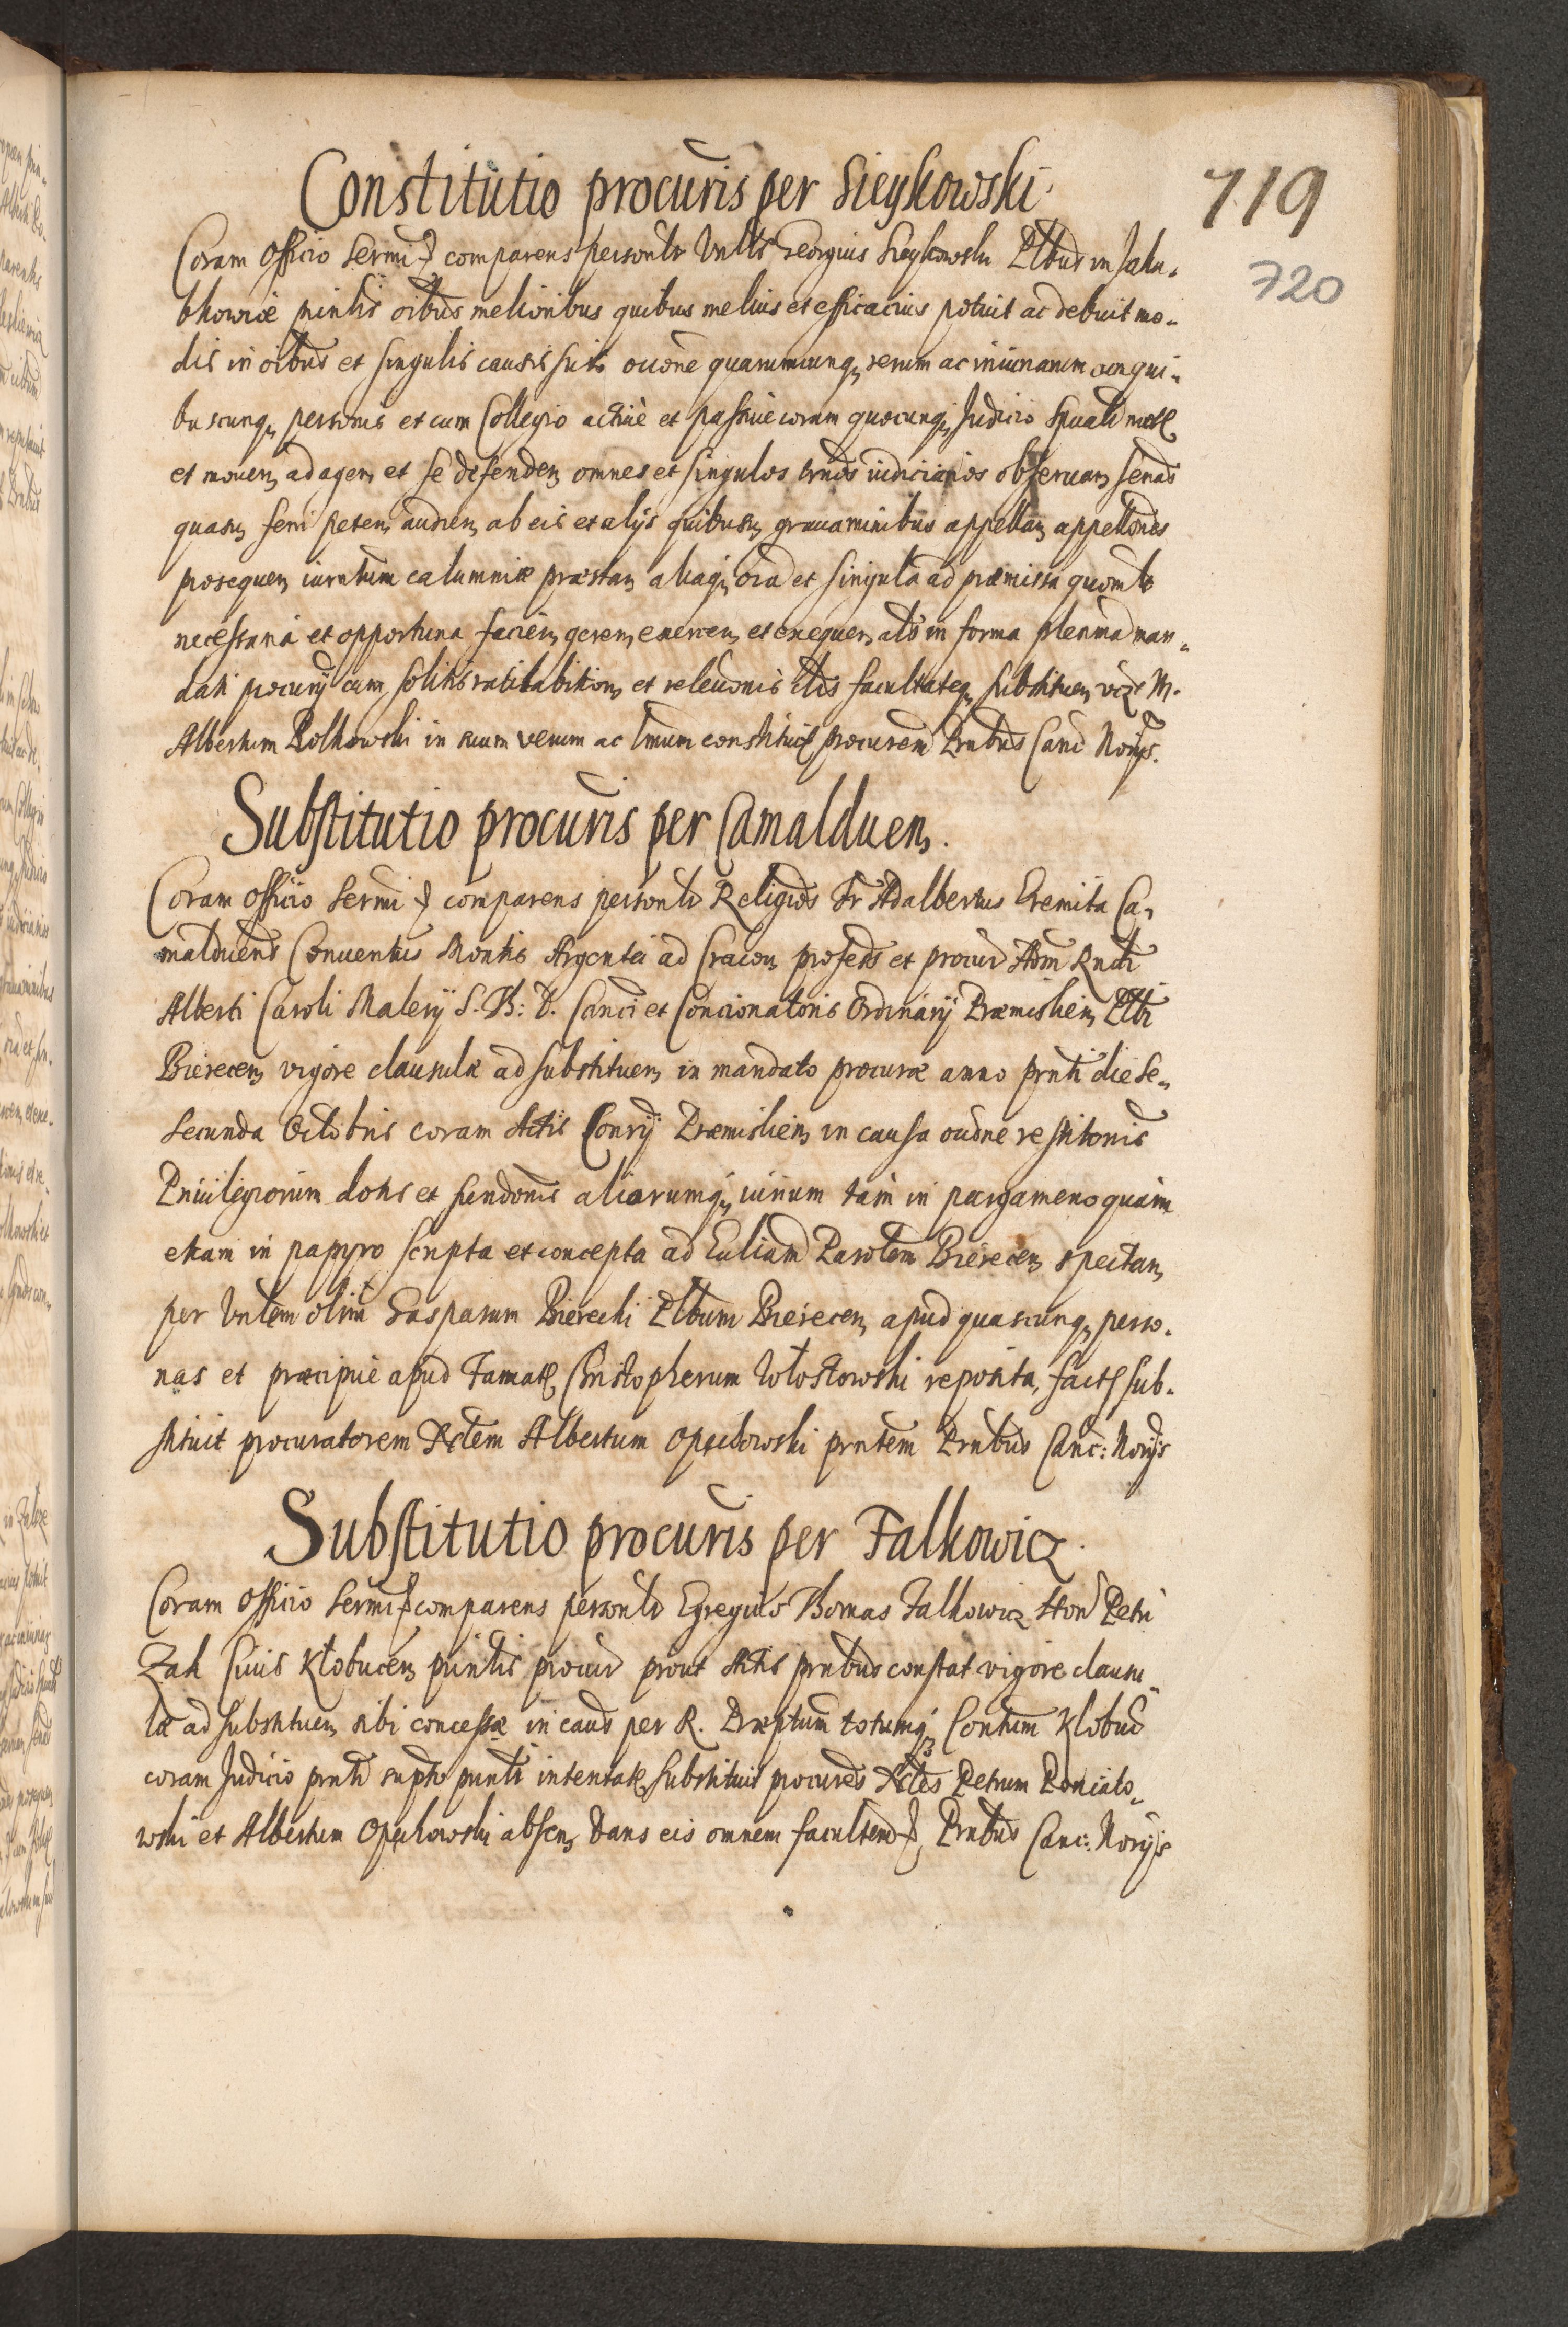 Constitutio procuris per Sieykowski.
719
720
Coram Officio sermi comparens personlr Vnlis Georgius Sieykowski Plbus in Jaku-
bkowice pintis oibus melioribus quibus melius et efficacius potuit ac debuit mo-
dis in oibus et singulis causis suis ouone quarumcunq, rerum ac iniuriarum cum qui-
buscunq, personis et cum Collegio active et passive coram quocunq, Judicio Spuali
et mouen, ad agen, et se defenden, omnes et singulos trnos iudiciarios obseruan, senas
quasu, ferri peten, audien, ab eis et alijs quibusu, grauaminibus appellan, appellones
prosequen, iurtum calumniæ præstan, aliaq, oia et singula ad præmissa quomlt
necessaria et opportuna facien, geren, exercen, et exequen, als in forma plenma man-
dati procurij cum solitis ratihabition, et releuonis clis facultateq, substituen, vizt M.
Albertum Rolkowski in suum verum ac lmum constituit procurem Prntbus Canc Norijs.
Substitutio procuris per Camalduen,.
Coram Officio sermi comparens personlr Religios Fr Adalbertus Eremita Ca-
malduens Conuentus Montis Argentei ad Cracou, profess et procur Adm Rndi
Alberti Caroli Malery S. Th: D. Canci et Concionatoris Ordinarij Præmislien, Plbi
Bierecen, vigore clausulæ ad substituen, in mandato procuræ anno prnti die se-
secunda Octobris coram Actis Consrij Præmislien, in causa oudne restitonis
Priuilegiorum dotis et fundonis aliarumq, iurium tam in pargameno quam
etiam in papyro scripta et concepta ad Ecliam Parolem Bierecen, spectan,
per Vnlem olim Gasparum Bierecki Plbum Bierecen, apud quascunq, perso-
nas et præcipue apud Famat, Christopherum Włostowski reposita, fact, sub-
stituit procuratorem Actem Albertum Opechowski prntem Prntbus Canc: Norijs
Substitutio procuris per Falkowicz.
Coram Officio sermi comparens personlr Egregius Thomas Falkowicz Hon Petri
Zak Ciuis Kłobucen, printis procur prout Actis prntbus constat vigore clausu-
læ ad substituen, sibi concessæ in caus per R. Præptum totumq, Contum Klobuc
coram Judicio prnti supto printi intentat, substituit procures Actes Petrum Poniato-
wski et Albertum Opechowski absen, Dans eis omnem facultem, Prntbus Canc: Norijs